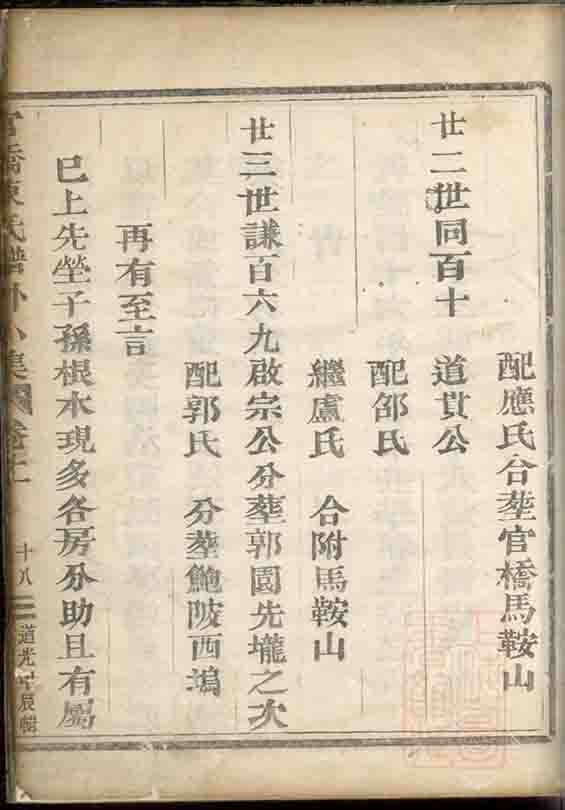 配應氏合塟官橋馬鞍山
廿二世同百十　道貫公
配邵氏
繼盧氏　合附馬鞍山
廿三世謙百六九啟宗公分塟郭園先壠之次
配郭氏　分塟鮑陂西塢
再有至言
巳上先塋子孫根本現多各房分助且有屬
橋陳氏譜外小集　卷十一　十八　道光甲辰輯